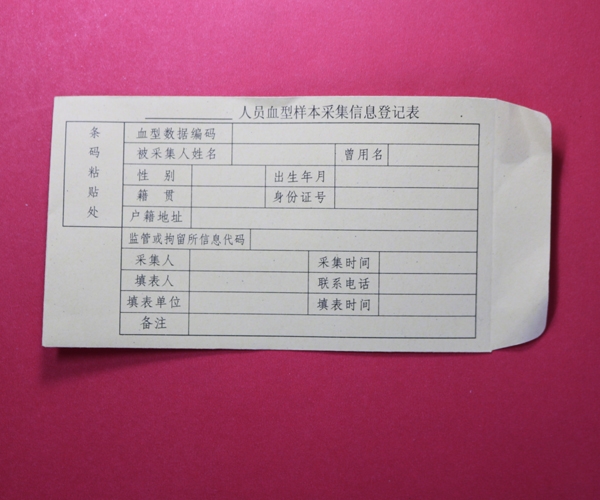 人员血型样本采集信息登记表
条码粘贴处
血型数据编码
被采集人姓名 曾用名
性别 出生年月
籍贯 身份证号
户籍地址
监管或拘留所信息代码
采集人 采集时间
填表人 联系电话
填表单位 填表时间
备注